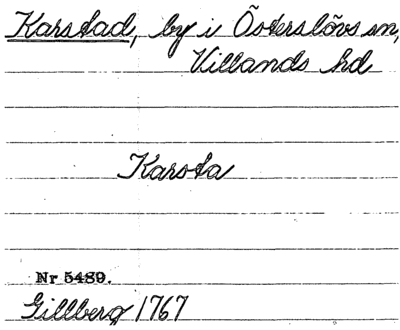 Karstad, by i Österslövs sn,
Villands hd
Karsta
Nr 5489.
Gillberg 1767